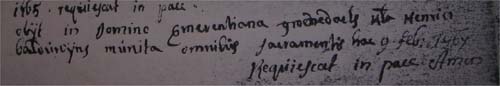 1765. requiescat in pace.
obijt in Domino Emerentiana groenedaels uxta Henrici
munita omnibus sacramentis hac 9 feb:
Requiescat in pace Amen